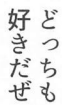 どっちも
好きだぜ